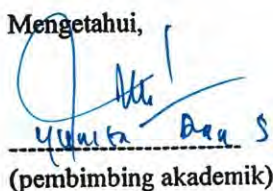 Mengetahui,
Dan S
(pembimbing akademik)